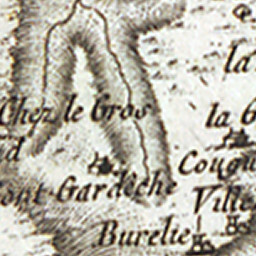 la
Chez le Gros
la G
Cougu
ont Gardêche
Ville
Burelie